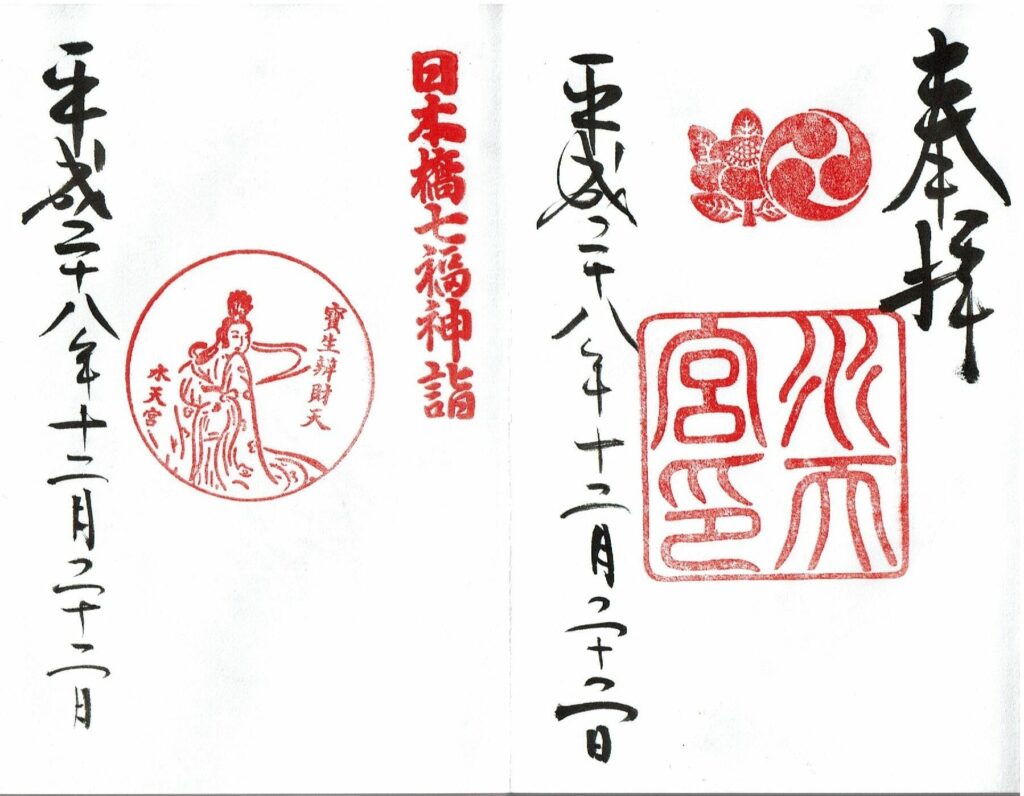 奉拝
水天
宮印
平成二十八年十二月二十二日
日本橋七福神詣
寶生辨財天
水天宮
平成二十八年十二月二十二日